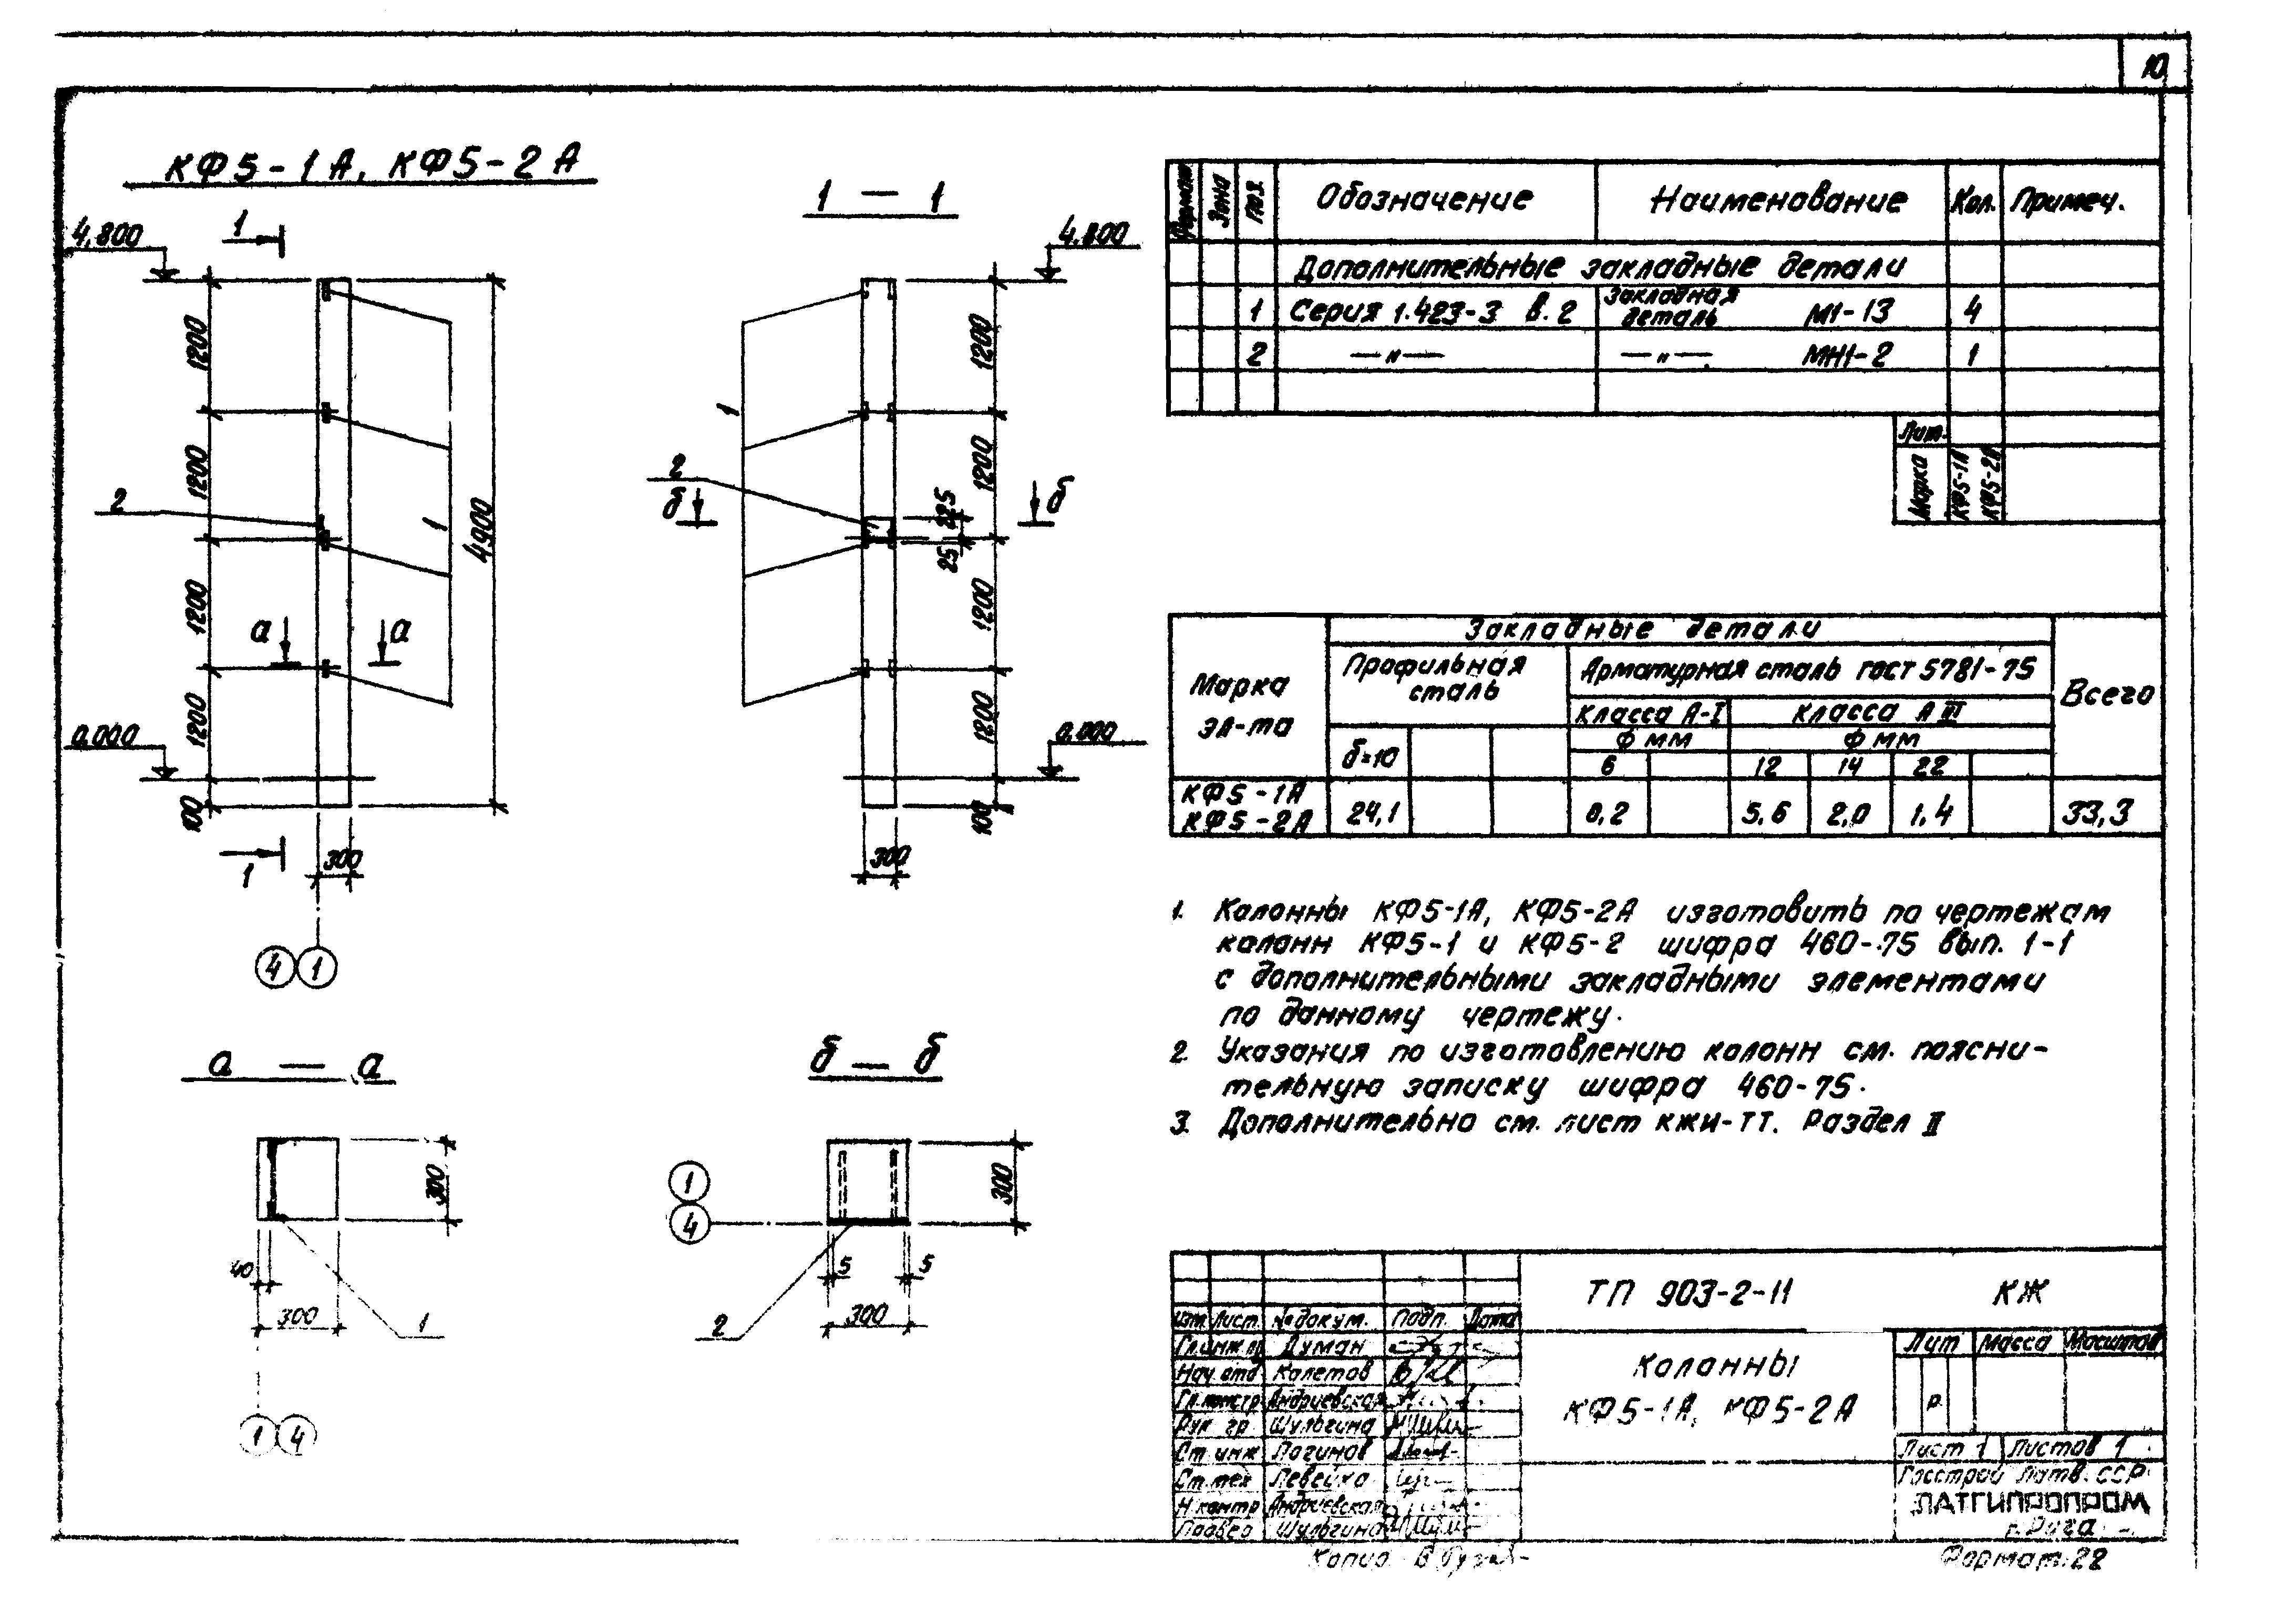 10
КФ5-1А, КФ5-2А
1
4,800
1200
1200
2
1
4900
1200
а
а
1200
0.000
100
1
300
4 1
1 — 1
4.800
1200
1
2
б
б
1200
225
25
1200
1200
0.000
100
300
а — а
300
40
300
1
1 4
б — б
1
4
300
5
5
300
2
Формат Зона Поз. Обозначение Наименование Кол. Примеч.
Дополнительные закладные детали
1 Серия 1.423-3 в.2 Закладная деталь М1-13 4
2 —"— —"— МН1-2 1
Лит.
Марка КФ5-1А КФ5-2А
Марка эл-та
Закладные детали
Профильная сталь
Арматурная сталь гост 5781-75
Всего
класса А-I класса А III
ф мм ф мм
δ=10 6 12 14 22
КФ5-1А
КФ5-2А 24,1 0,2 5,6 2,0 1,4 33,3
1. Колонны КФ5-1А, КФ5-2А изготовить по чертежам
колонн КФ5-1 и КФ5-2 шифра 460-75 вып. 1-1
с дополнительными закладными элементами
по данному чертежу.
2. Указания по изготовлению колонн см. поясни-
тельную записку шифра 460-75.
3. Дополнительно см. лист кжи-ТТ. Раздел II
ТП 903-2-11 КЖ
Изм. Лист. № докум. Подп. Дата
Гл.инж.пр Думан
Нач.отд Калетов
Гл.констр Андриевская
Рук гр. Шульгина
Ст.инж Логинов
Ст.тех Левейко
Н.контр Андриевская
Провер Шульгина
Колонны
КФ5-1А, КФ5-2А
Лит Масса Масштаб
Р.
Лист 1 Листов 1
Госстрой Латв. ССР
ЛАТГИПРОПРОМ
г. Рига
Копир
Формат: 22